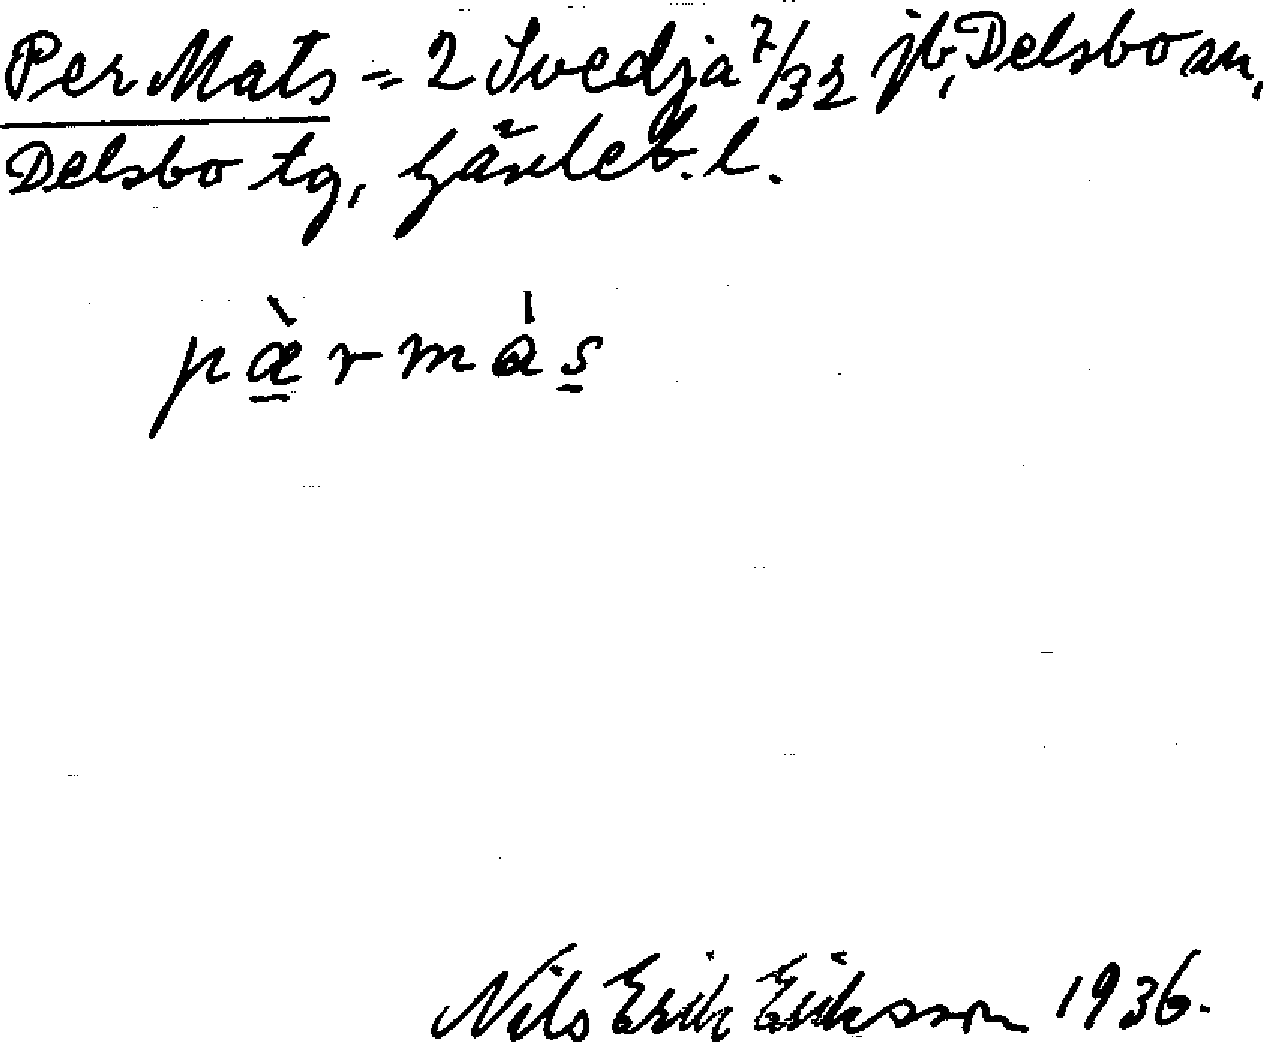 Per Mats = 2 Svedja 7/32 jb, Delsbo sn,
Delsbo tg, Gävleb. l.
pæ̀rmás
Nils Erik Eriksson 1936.